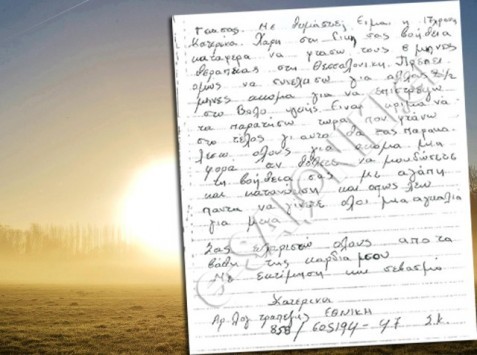 Γειά σας. Με θυμάστε; Είμαι η 17χρονη
Κατερίνα. Χάρη στη δική σας βοήθεια
κατάφερα να φτάσω τους 8 μήνες
θεραπείας στη Θεσσαλονίκη. Πρέπει
όμως να συνεχίσω για άλλους
μήνες ακόμα για να επιστρέψω
στο Βόλο Είναι κρίμα να
τα παρατήσω τώρα που φτάνω
στο τέλος γι αυτό θα σας παρακα-
λέσω όλους για ακόμα μια
φορά αν θέλετε να μου δώσετε
τη βοήθειά σας με αγάπη
και κατανόηση και όπως λέω
πάντα να γίνουμε όλοι μια αγκαλιά
για μένα
Σας ευχαριστώ όλους από τα
βάθη της καρδιά μου
Με εκτίμηση και σεβασμό
Κατερίνα
Αρ. Λογ τραπέζης ΕΘΝΙΚΗ
858/605194-47 Σ.Κ.